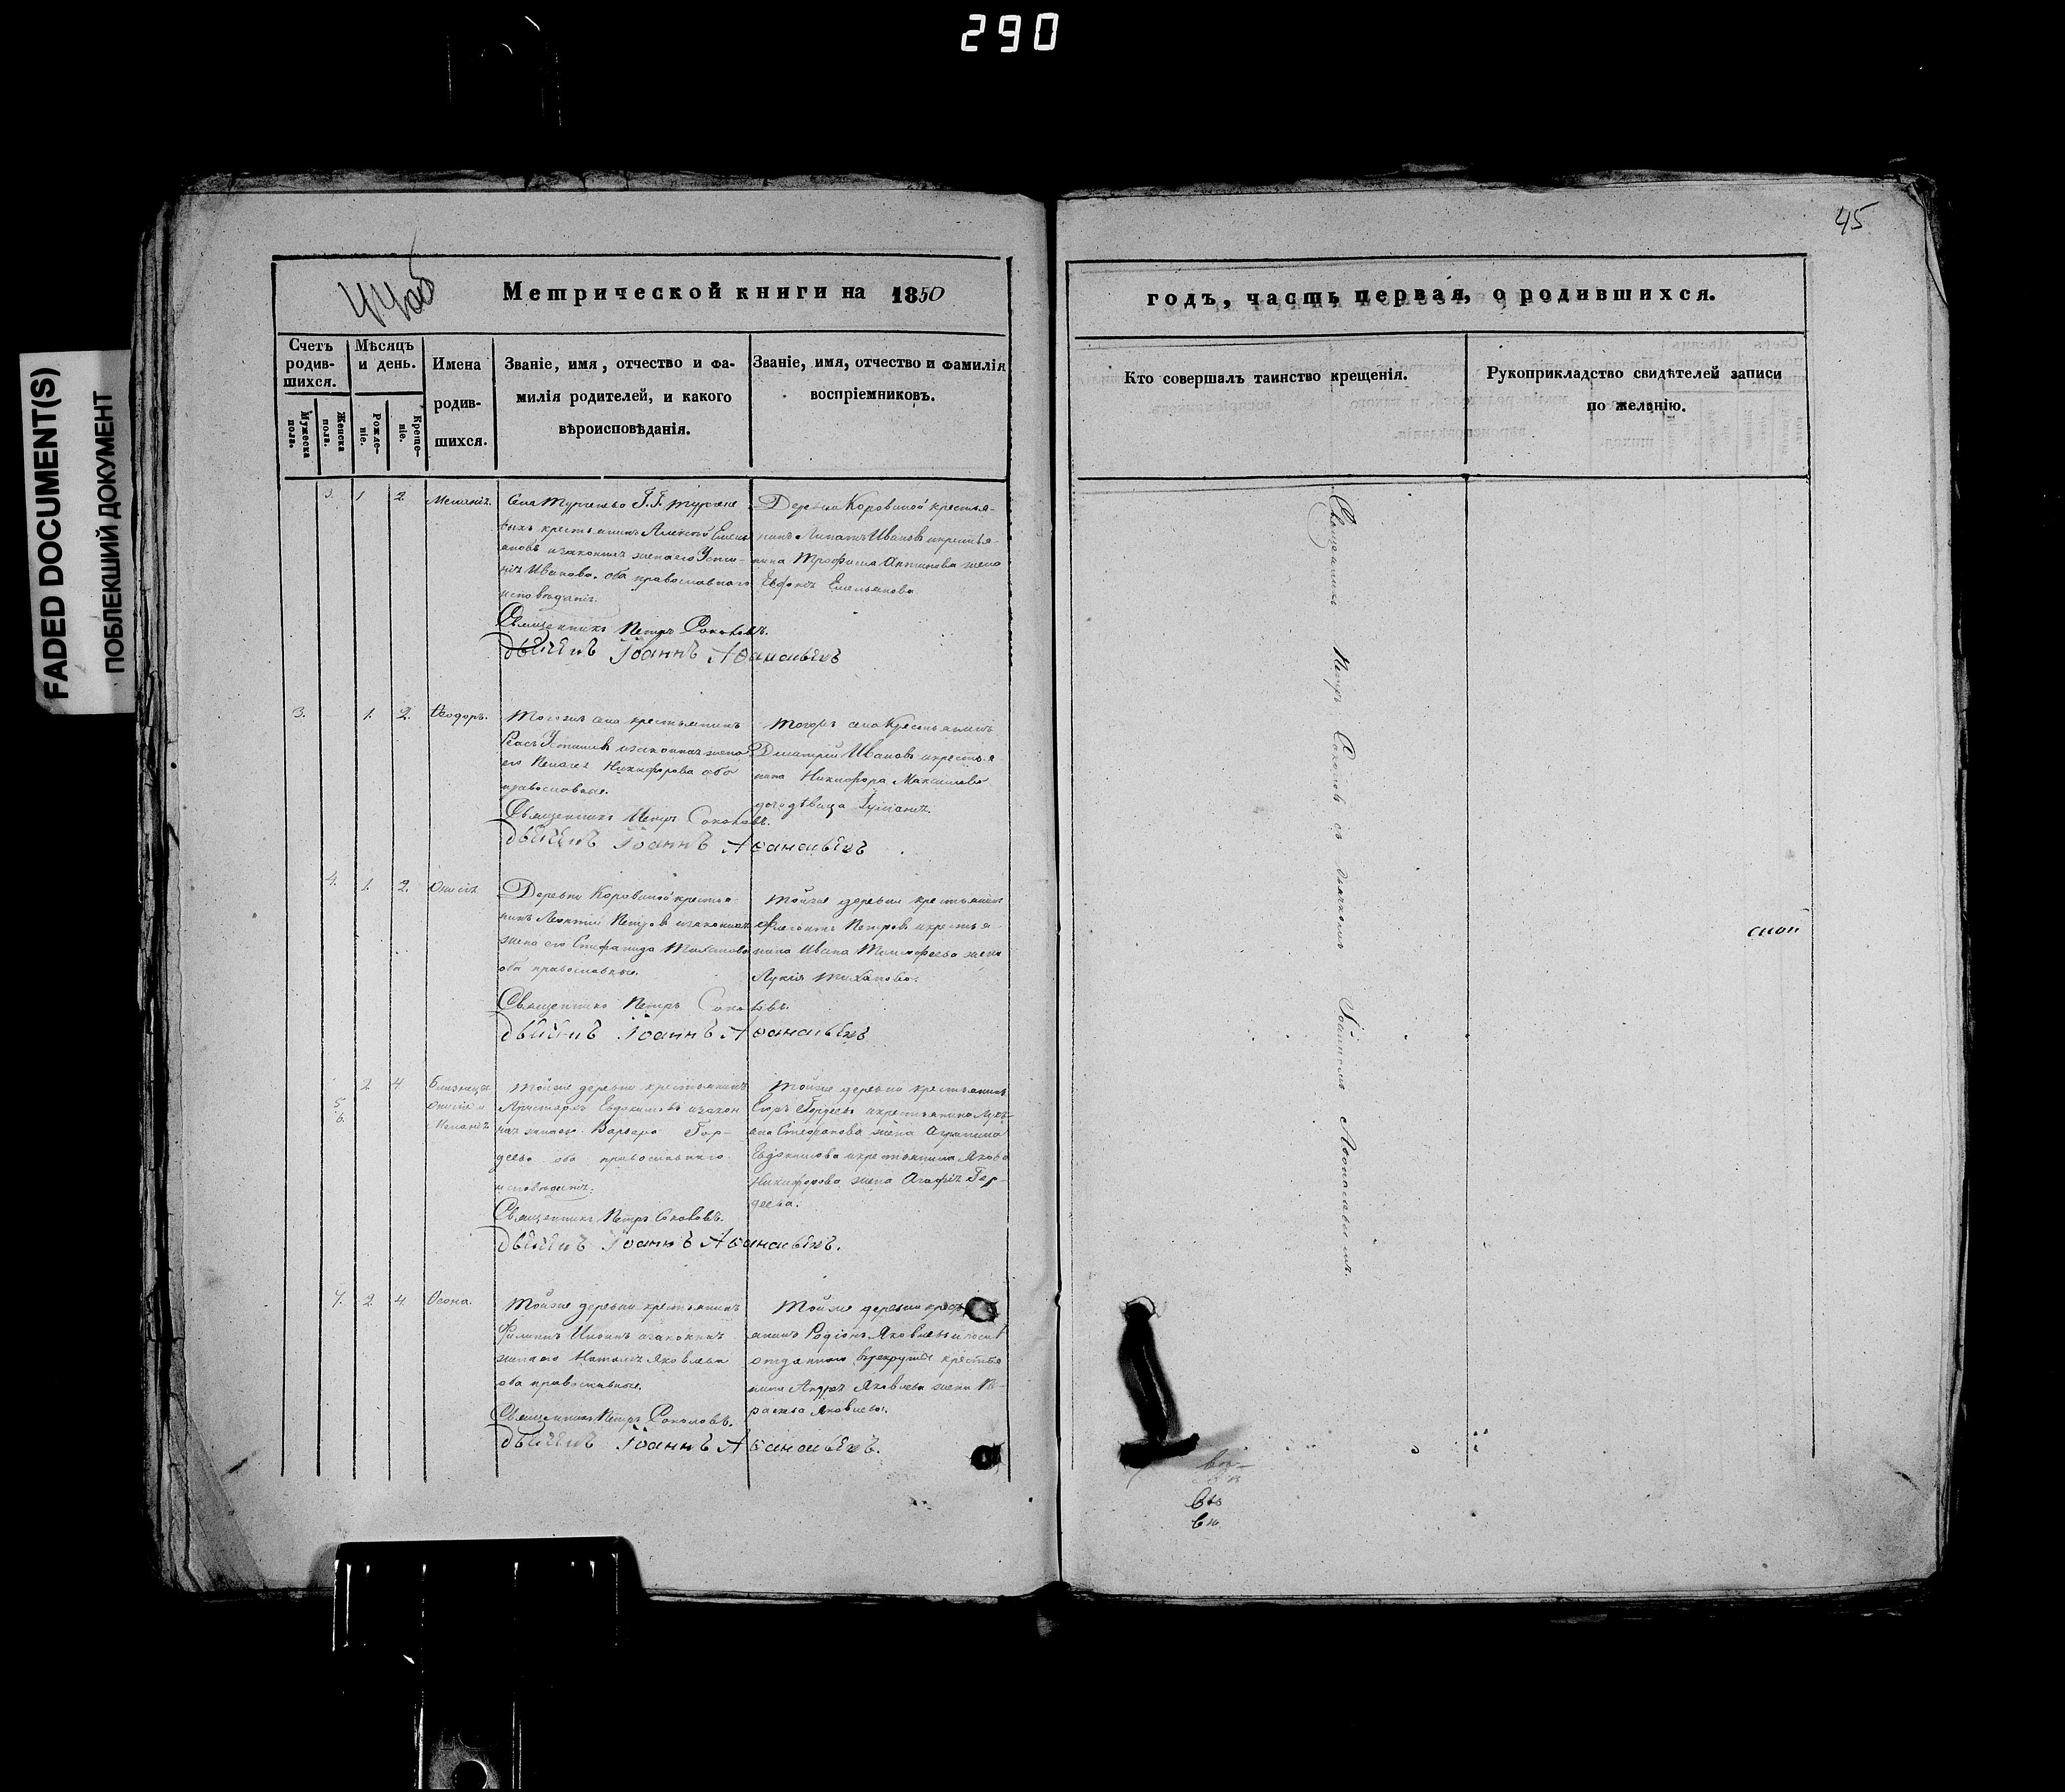 290
FADED DOCUMENT(S)
ПОБЛЕКШИЙ ДОКУМЕНТ
45
44об
Метрической книги на 1850
годъ, часть первая, о родившихся.
Счетъ родив-шихся.
Мужеска пола.
Женска пола.
Мѣсяцъ и день.
Рожде-ніе.
Креще-ніе.
Имена
родив-
шихся.
Званіе, имя, отчество и фа-
милія родителей, и какого
вѣроисповѣданія.
Званіе, имя, отчество и фамилія
воспріемниковъ.
Кто совершалъ таинство крещенія.
Рукоприкладство свидѣтелей записи
по желанію.
3. 1 2. Меланія.
крестьянинъ Алексѣй Емель
яновъ и законная жена его Усти-
нія Иванова. оба православнаго
исповѣданія.
Священникъ Петръ Соколовъ.
Іоаннъ Аѳанасьевъ
Деревни Коровиной крестья-
нинъ Ипатъ Ивановъ и крестья-
нина Трофима Антипова жена
Емельянова
3. 1. 2. Ѳеодоръ.
Тогожъ села крестьянинъ
и законная жена
его Пелагея Никифорова оба
православные.
Священникъ Петръ Соколовъ.
Іоаннъ Аѳанасьевъ
Тогожъ села Крестьянинъ
Димитрій Ивановъ и крестья
нина Никифора Максимова
дочь дѣвица Іуліанія.
4. 1. 2. Онисія
Деревни Коровиной крестья-
нинъ Леонтій Петровъ и законная
жена его Стефанида
оба православные.
Священникъ Петръ Соколовъ.
Іоаннъ Аѳанасьевъ
Тойже деревни крестьянинъ
Петровъ и крестья-
нина Ивана Тимофеева жена
Лукія
5. 6. 2 4 Близнецы
Онисія и
Меланія
Тойже деревни крестьянинъ
Аристархъ Евдокимовъ и закон
ная жена его Варвара Гор-
деева оба православнаго
исповѣданія.
Священникъ Петръ Соколовъ.
Іоаннъ Аѳанасьевъ.
Тойже деревни крестьянинъ
Гордеевъ и крестьянина Лукі-
яна Стефанова жена Агрипина
Евдокимова и крестьянина Якова
Никифорова жена Агафія Гор-
деева.
7. 2 4
Тойже деревни крестьянинъ
Филиппъ и законная
жена его Наталія Яковлева
оба православные.
Священникъ Петръ Соколовъ.
Іоаннъ Аѳанасьевъ.
Тойже деревни крестъ
янинъ Родіонъ Яковлевъ и
отданнаго въ рекруты крестья
нина Андрея Яковлева жена Па-
раскева Яковлева.
Священникъ Петръ Соколовъ съ дьячкомъ Іоанномъ Аѳанасьевымъ.